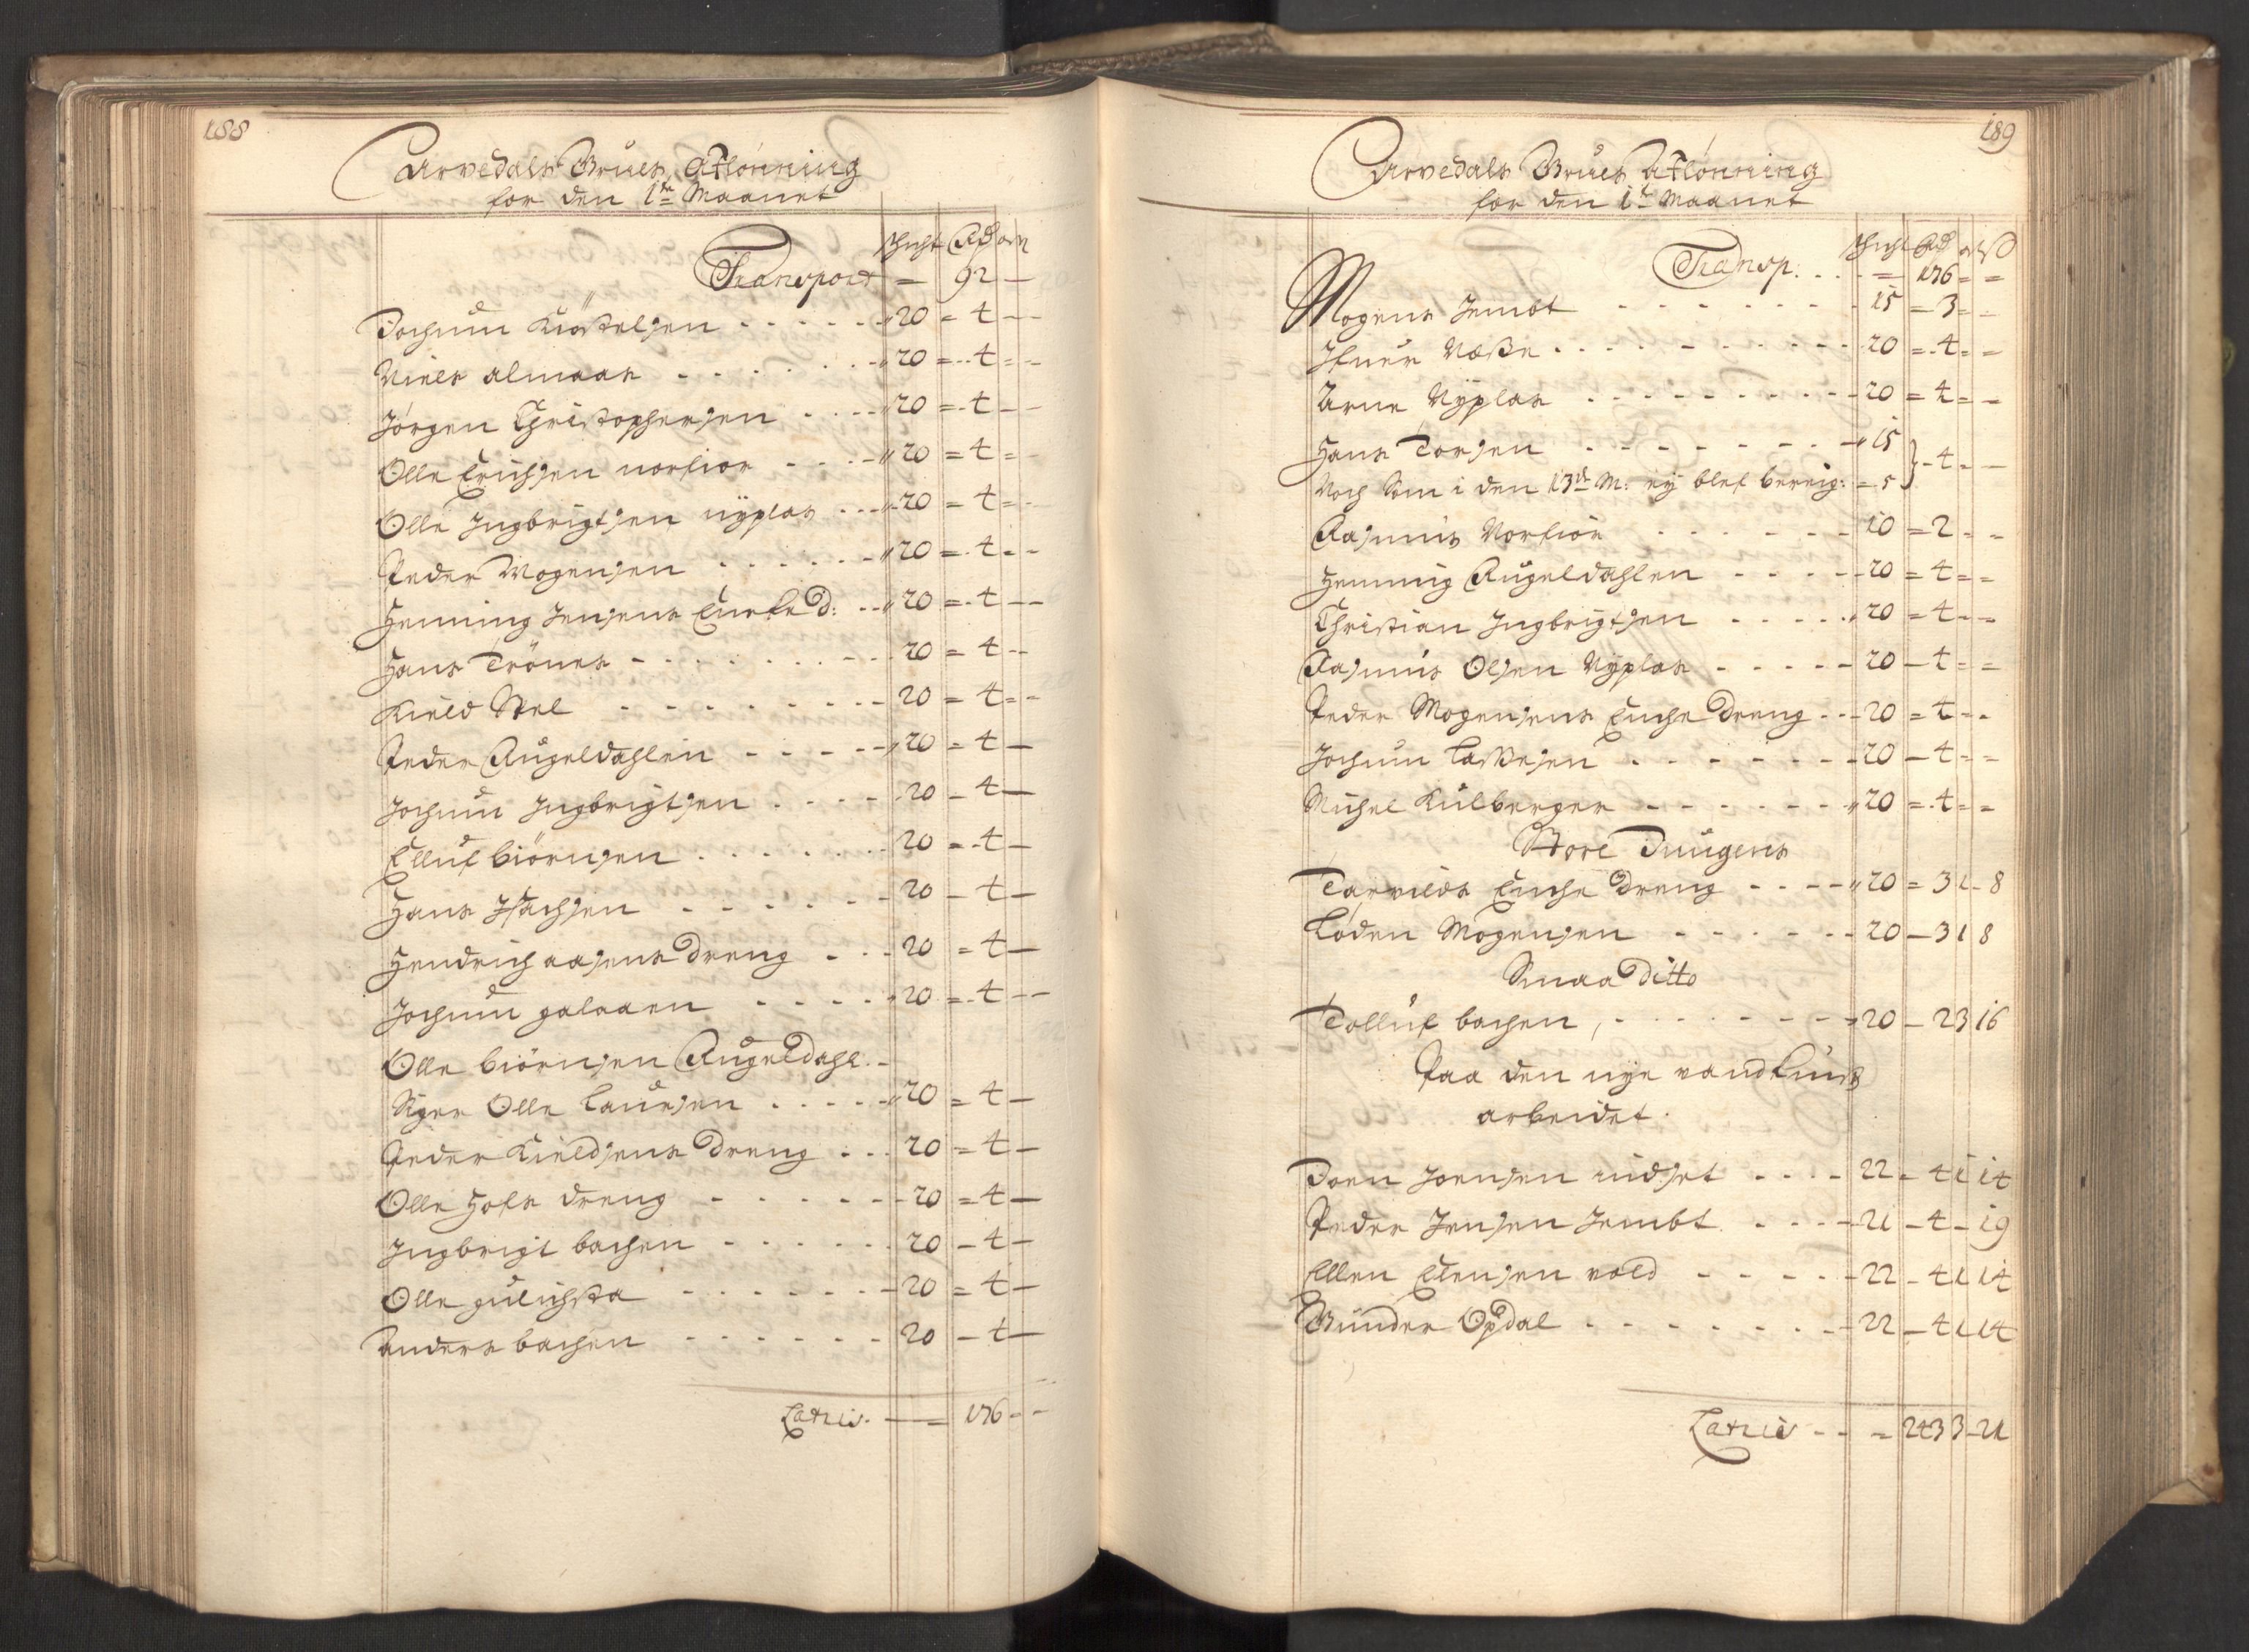 188
Arvedals Grues Aflønning
for den 1te Maanet
Schicht Rdr ort
Transport — 92 —
Jochum Kiøstelsen - - - - - 20 = 4 - -
Niels almaas - - - - - 20 = 4 = -
Jørgen Christophersen - - - - 20 = 4 - -
Olle Erichsen norfior - - - - 20 = 4 = -
Olle Ingbrigtsen nÿplas - - - 20 = 4 = -
Peder Mogensen - - - - - - 20 = 4 - -
Henning Jensens Encke D: - - 20 = 4 - -
Hans Trönes - - - - - - - 20 = 4 - -
Kield Stel - - - - - - - - 20 = 4 = -
Peder Rugeldahlen - - - - - 20 = 4 —
Jochum Ingbrigtsen - - - - 20 - 4 —
Elluf biörnsen - - - - - - - 20 = 4 —
Hans Isachsen - - - - - - 20 - 4 —
Hendrich aasens Dreng - - - 20 = 4 —
Jochum galaaen - - - - - 20 = 4 - -
Olle biörnsen Rugeldahl. -
Siger Olle Laursen - - - - - 20 = 4 —
Peder Kieldsens Dreng - - - 20 = 4 —
Olle Hofs dreng - - - - - - 20 = 4 —
Ingbrigt bachen - - - - - - 20 - 4 —
Olle gulichsta - - - - - - - 20 = 4 —
Anders bachen - - - - - - 20 - 4 —
Latris. — = 176 = -
189
Arvedals Grues Aflønning
for den 1te Maanet
Schicht Rd ort ß
Transp. - - - = 176 = -
Mogens Jembt - - - - - - - - 15 = 3 = -
Ifuer Næsse - - - - - - - - - 20 = 4 = -
Arne Nÿplas - - - - - - - - - 20 = 4 = -
Hans Torsen - - - - - - - - 15
Noch Som i den 13de M: eÿ blef bereig: = 5 } - 4 - —
Rasmus Norfior - - - - - - 10 = 2 - -
Henning Rugeldahlen - - - - - 20 = 4 = -
Christian Ingbrigtsen - - - - - 20 = 4 - -
Rasmus Olsen Nÿplas - - - - - 20 - 4 = -
Peder Mogensens Enche Dreng - - - 20 = 4 - -
Jochum Lassesen - - - - - - - 20 - 4 = -
Michel Kulberger - - - - - - - 20 = 4 = -
Store Jungens
Tarvelds Enche Dreng - - - - 20 = 3 1 - 8
Løden Mogensen - - - - - - 20 - 3 1 8
Smaa Ditto
Tolluf bachen, - - - - - - - 20 - 2 3 16
Paa den nye vandkunst
arbeidet.
Joen Joensen midset - - - - 22 - 4 1 14
Peder Jensen Jembt - - - - 21 - 4 - 19
Ellen Elensen vold - - - - - 22 - 4 1 14
Gunder Opdal - - - - - - - - 22 - 4 1 14
Latris - - = 243 3 - 21